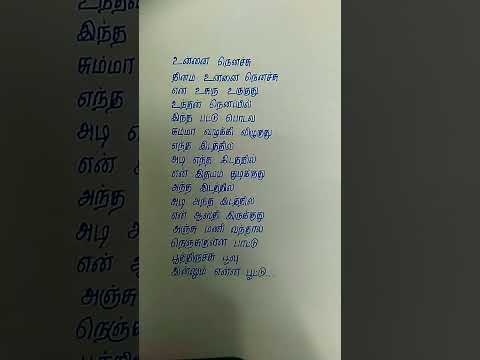 உன்னை நெனச்சு
தினம் உன்னை நெனச்சு
என் உசுரு உருகுது
உந்தன் நெனப்பில்
இந்த பட்டு பொடவ
சும்மா வழுக்கி விழுகுது
எந்த இடத்தில்
அடி எந்த இடத்தில்
என் இதயம் துடிக்குது
அந்த இடத்தில்
அடி அந்த இடத்தில்
என் ஆவி இருக்குது
அஞ்சு மணி வந்தால்
நெஞ்சுக்குள்ள பாட்டு
பூத்திருச்சு பூவு
இன்னும் என்ன பூட்டு..